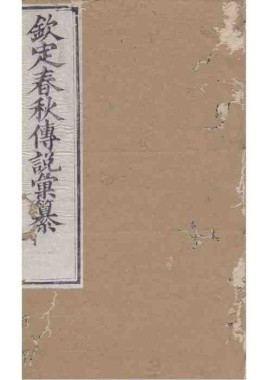 欽定春秋傳説彙纂